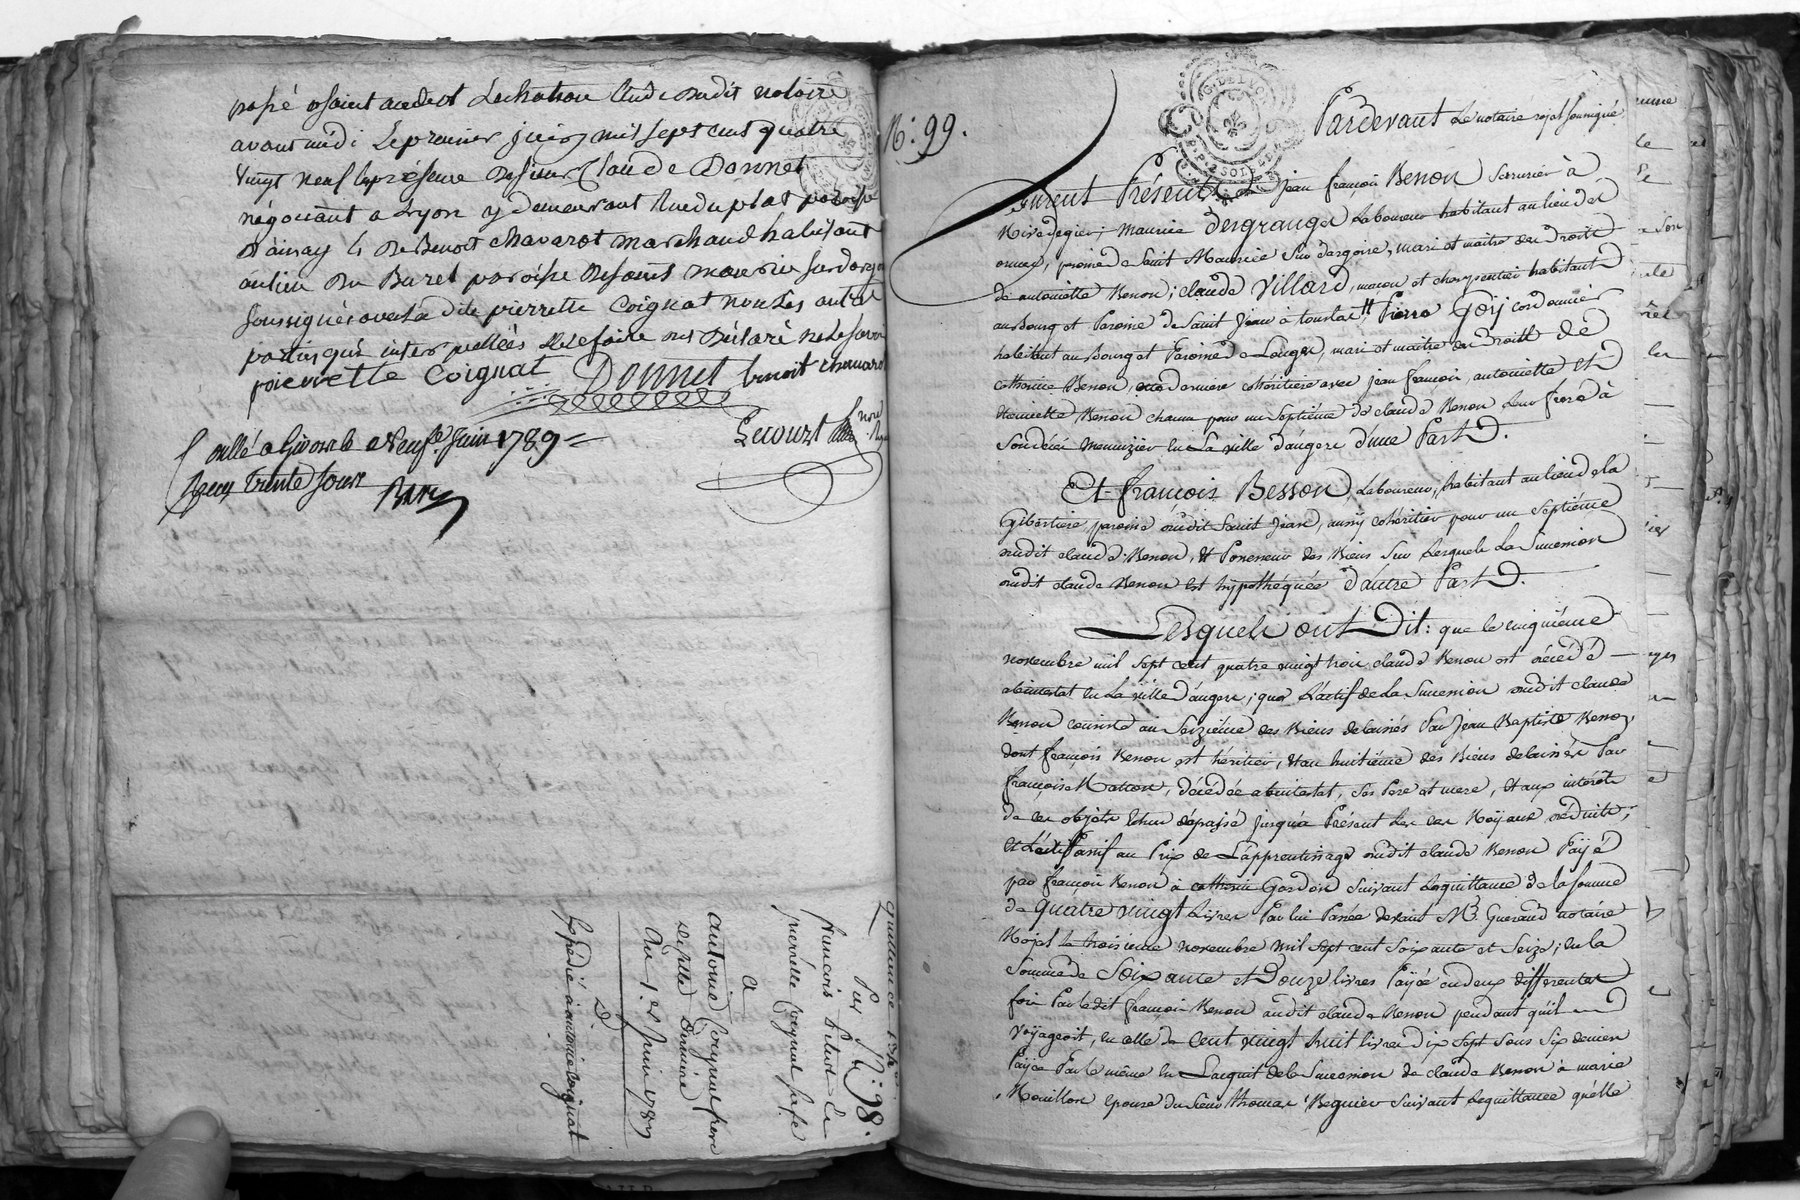 passé
avant midi le premier juin mil sept cent quatre
vingt neuf en présence de sieur Claude Donnet
négociant a Lyon y demeurant Rue du plat paroisse
d'ainay & de Benoit Chavarot marchand habitant
au lieu du Buret paroisse de saint maurice sur dargoire
soussignés avec la dite pierrette Coignat non les autres
parties qui interpellées de le faire ont déclaré ne le savoir
pierrette Coignat Donnet benoit chavarot
Lecourt
Collé a Givors le neuf. Juin 1789
Reçu trente sous
quittance
Par N: 98.
francois
pierrette Coignat sa fe
A
antoine Coignat frere
de felle derniere
Du 1.er Juin 1789
Expédié à antoine Coignat
N: 99.
Pardevant Le notaire royal soussigné
Furent Présents Jean françois Benon Serrurier à
Rivedegier; Maurice Desgranges Laboureur habitant au lieu de
paroisse de Saint Maurice Sur dargoire, mari et maitre des Droits
de antoinette Benon; Claude Villard, maçon et charpentier habitant
au Bourg et Paroisse de Saint Jean à touslas; Pierre Goy cordonnier
habitant au Bourg et Paroisse de Longes, mari et maitre des Droits de
Catherine Benon, cette derniere cohéritiere avec jean françois, antoinette et
Benon chacun pour un Septiéme de claude Benon Leur frere à
Son décès menuizier en La ville d'angers d'une Part.
Et françois Besson, Laboureur, habitant au lieu de la
Gibertiere, paroisse dudit Saint Jean, aussy cohéritier pour un Septiéme
dudit claude Benon, & Possesseur des Biens Sur Lesquels La Succession
dudit claude Benon est hypothéquée d'autre Part.
Lesquels ont Dit: que le cinquiéme
novembre mil Sept cent quatre vingt trois claude Benon est décédé
abintestat en La ville d'angers; que L'actif de La Succession dudit claude
Benon consiste au Seiziéme des Biens delaissés Par Jean Baptiste Benon,
dont françois Benon est héritier, & au huitiéme des Biens delaissés Par
françoise Matton, décédée abintestat, Ses Pere et mere, & aux intérêts
de ces objets échus depassé jusqu'à Présent Les Royaux déduits;
Et Le Passif au Prix de L'apprentissage dudit claude Benon Payé
par françois Benon à Catherin Gordon Suivant La quittance de la Somme
de Quatre vingt Livres Par lui Passée devant M.e Gueraud notaire
Royal le troisieme novembre mil Sept cent Soixante et Seize; en la
Somme de Soixante et Douze livres Payée en deux differentes
fois Par ledit françois Benon audit claude Benon pendant qu'il
Voÿageoit, en celle de Cent vingt huit livres dix Sept Sous Six deniers
Payée Par le même en L'acquit de la Succession de claude Benon à marie
Rouillon épouse du Sieur thomas Regnier Suivant La quittance qu'elle